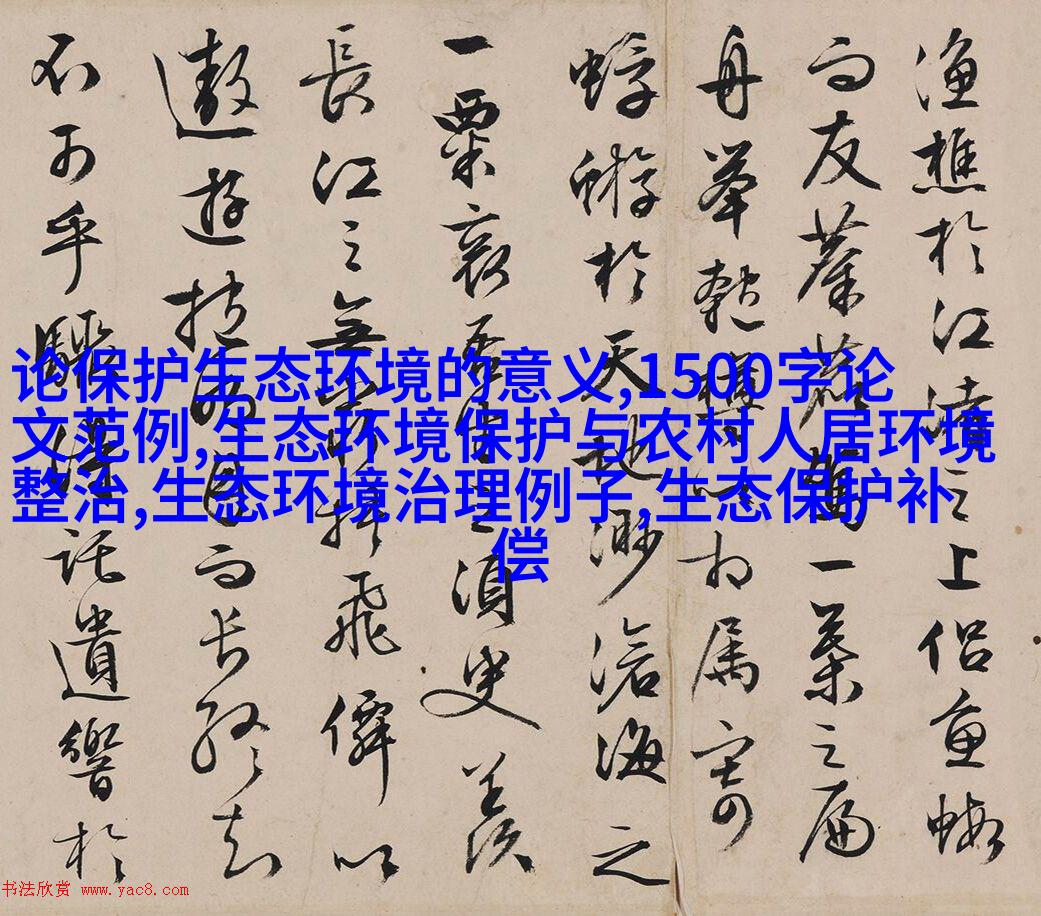 论保护生态环境的意义,1500字论
文范例,生态环境保护与农村人居环境
整治,生态环境治理例子,生态保护补
偿
漁樵於江渚之上侣魚蝦
而友麋鹿駕一葉之扁
舟舉匏樽以相属寄
蜉蝣於天地渺滄海之
一粟哀吾生之須臾羨
長江之無窮挾飛僊以
遨遊抱明月而長終知
不可乎驟得託遺響於
书法欣赏 www.yac8.com